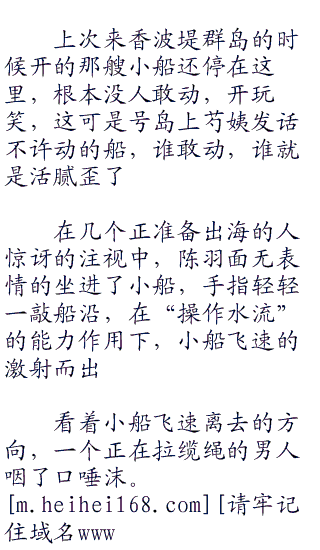 上次来香波堤群岛的时
候开的那艘小船还停在这
里，根本没人敢动，开玩
笑，这可是号岛上芍姨发话
不许动的船，谁敢动，谁就
是活腻歪了
在几个正准备出海的人
惊讶的注视中，陈羽面无表
情的坐进了小船，手指轻轻
一敲船沿，在“操作水流”
的能力作用下，小船飞速的
激射而出
看着小船飞速离去的方
向，一个正在拉缆绳的男人
咽了口唾沫。
[m.heihei168.com][请牢记
住域名www